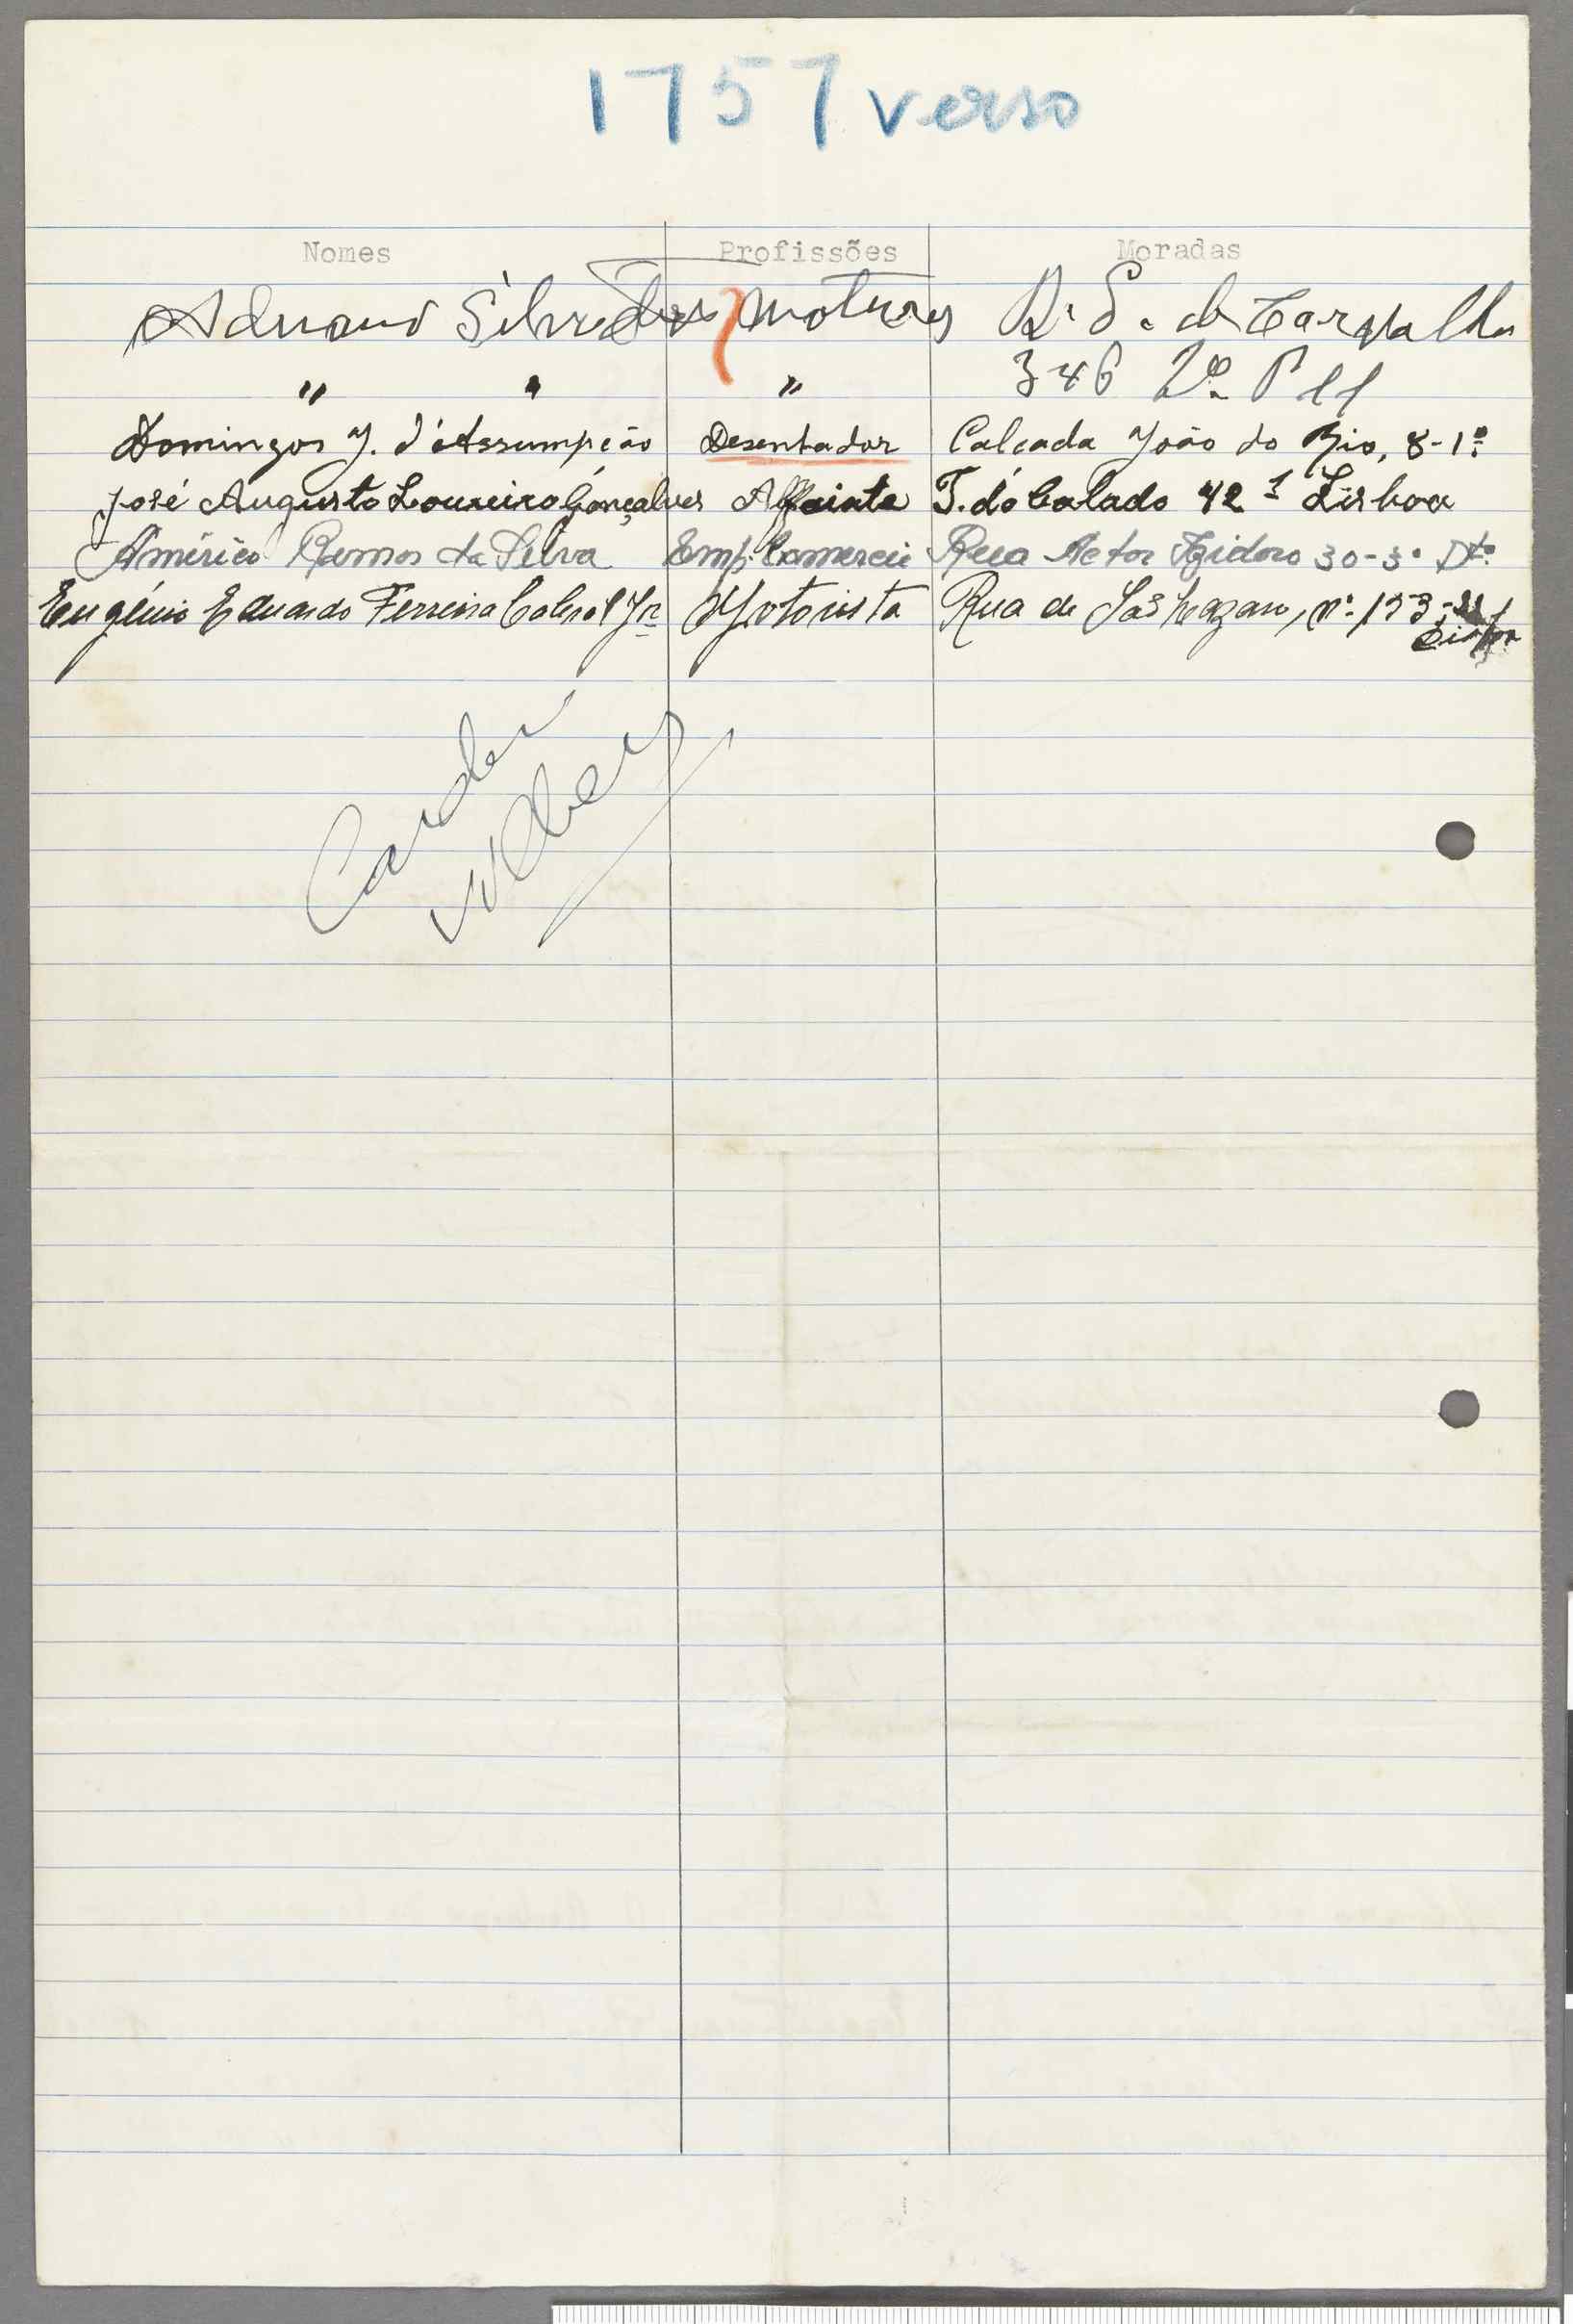 1757 verso
Nomes Profissões Moradas
Adriano Silvestre R. S. de Carvalho
" " " 346 2º P 11
Domingos J. d'Assumpção Desenhador Calcada João do Rio, 8-1º
José Augusto Loureiro Gonçalves Alfaiate T. do Calado 42 1 Lisboa
Américo Ramos da Silva Emp. Comercio Rua Actor Izidoro 30-3º Dto
Eugénio Eduardo Ferreira Cabral Jr Motorista Rua de São Lazaro, nº 153
Lisboa